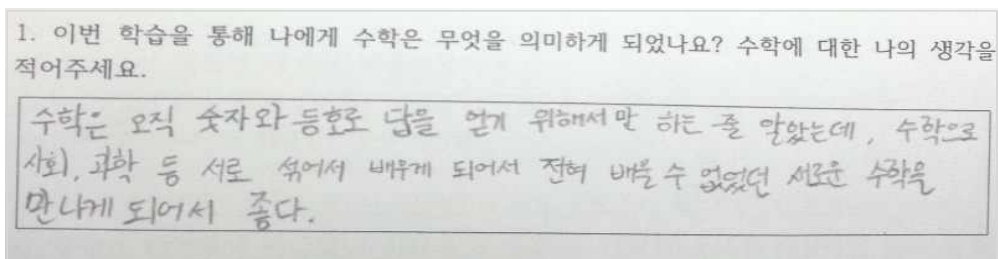 1. 이번 학습을 통해 나에게 수학은 무엇을 의미하게 되었나요? 수학에 대한 나의 생각을
적어주세요.
수학은 오직 숫자와 등호로 답을 얻기 위해서만 하는 줄 알았는데, 수학으로
사회, 과학 등 서로 섞어서 배우게 되어서 전혀 배울 수 없었던 새로운 수학을
만나게 되어서 좋다.